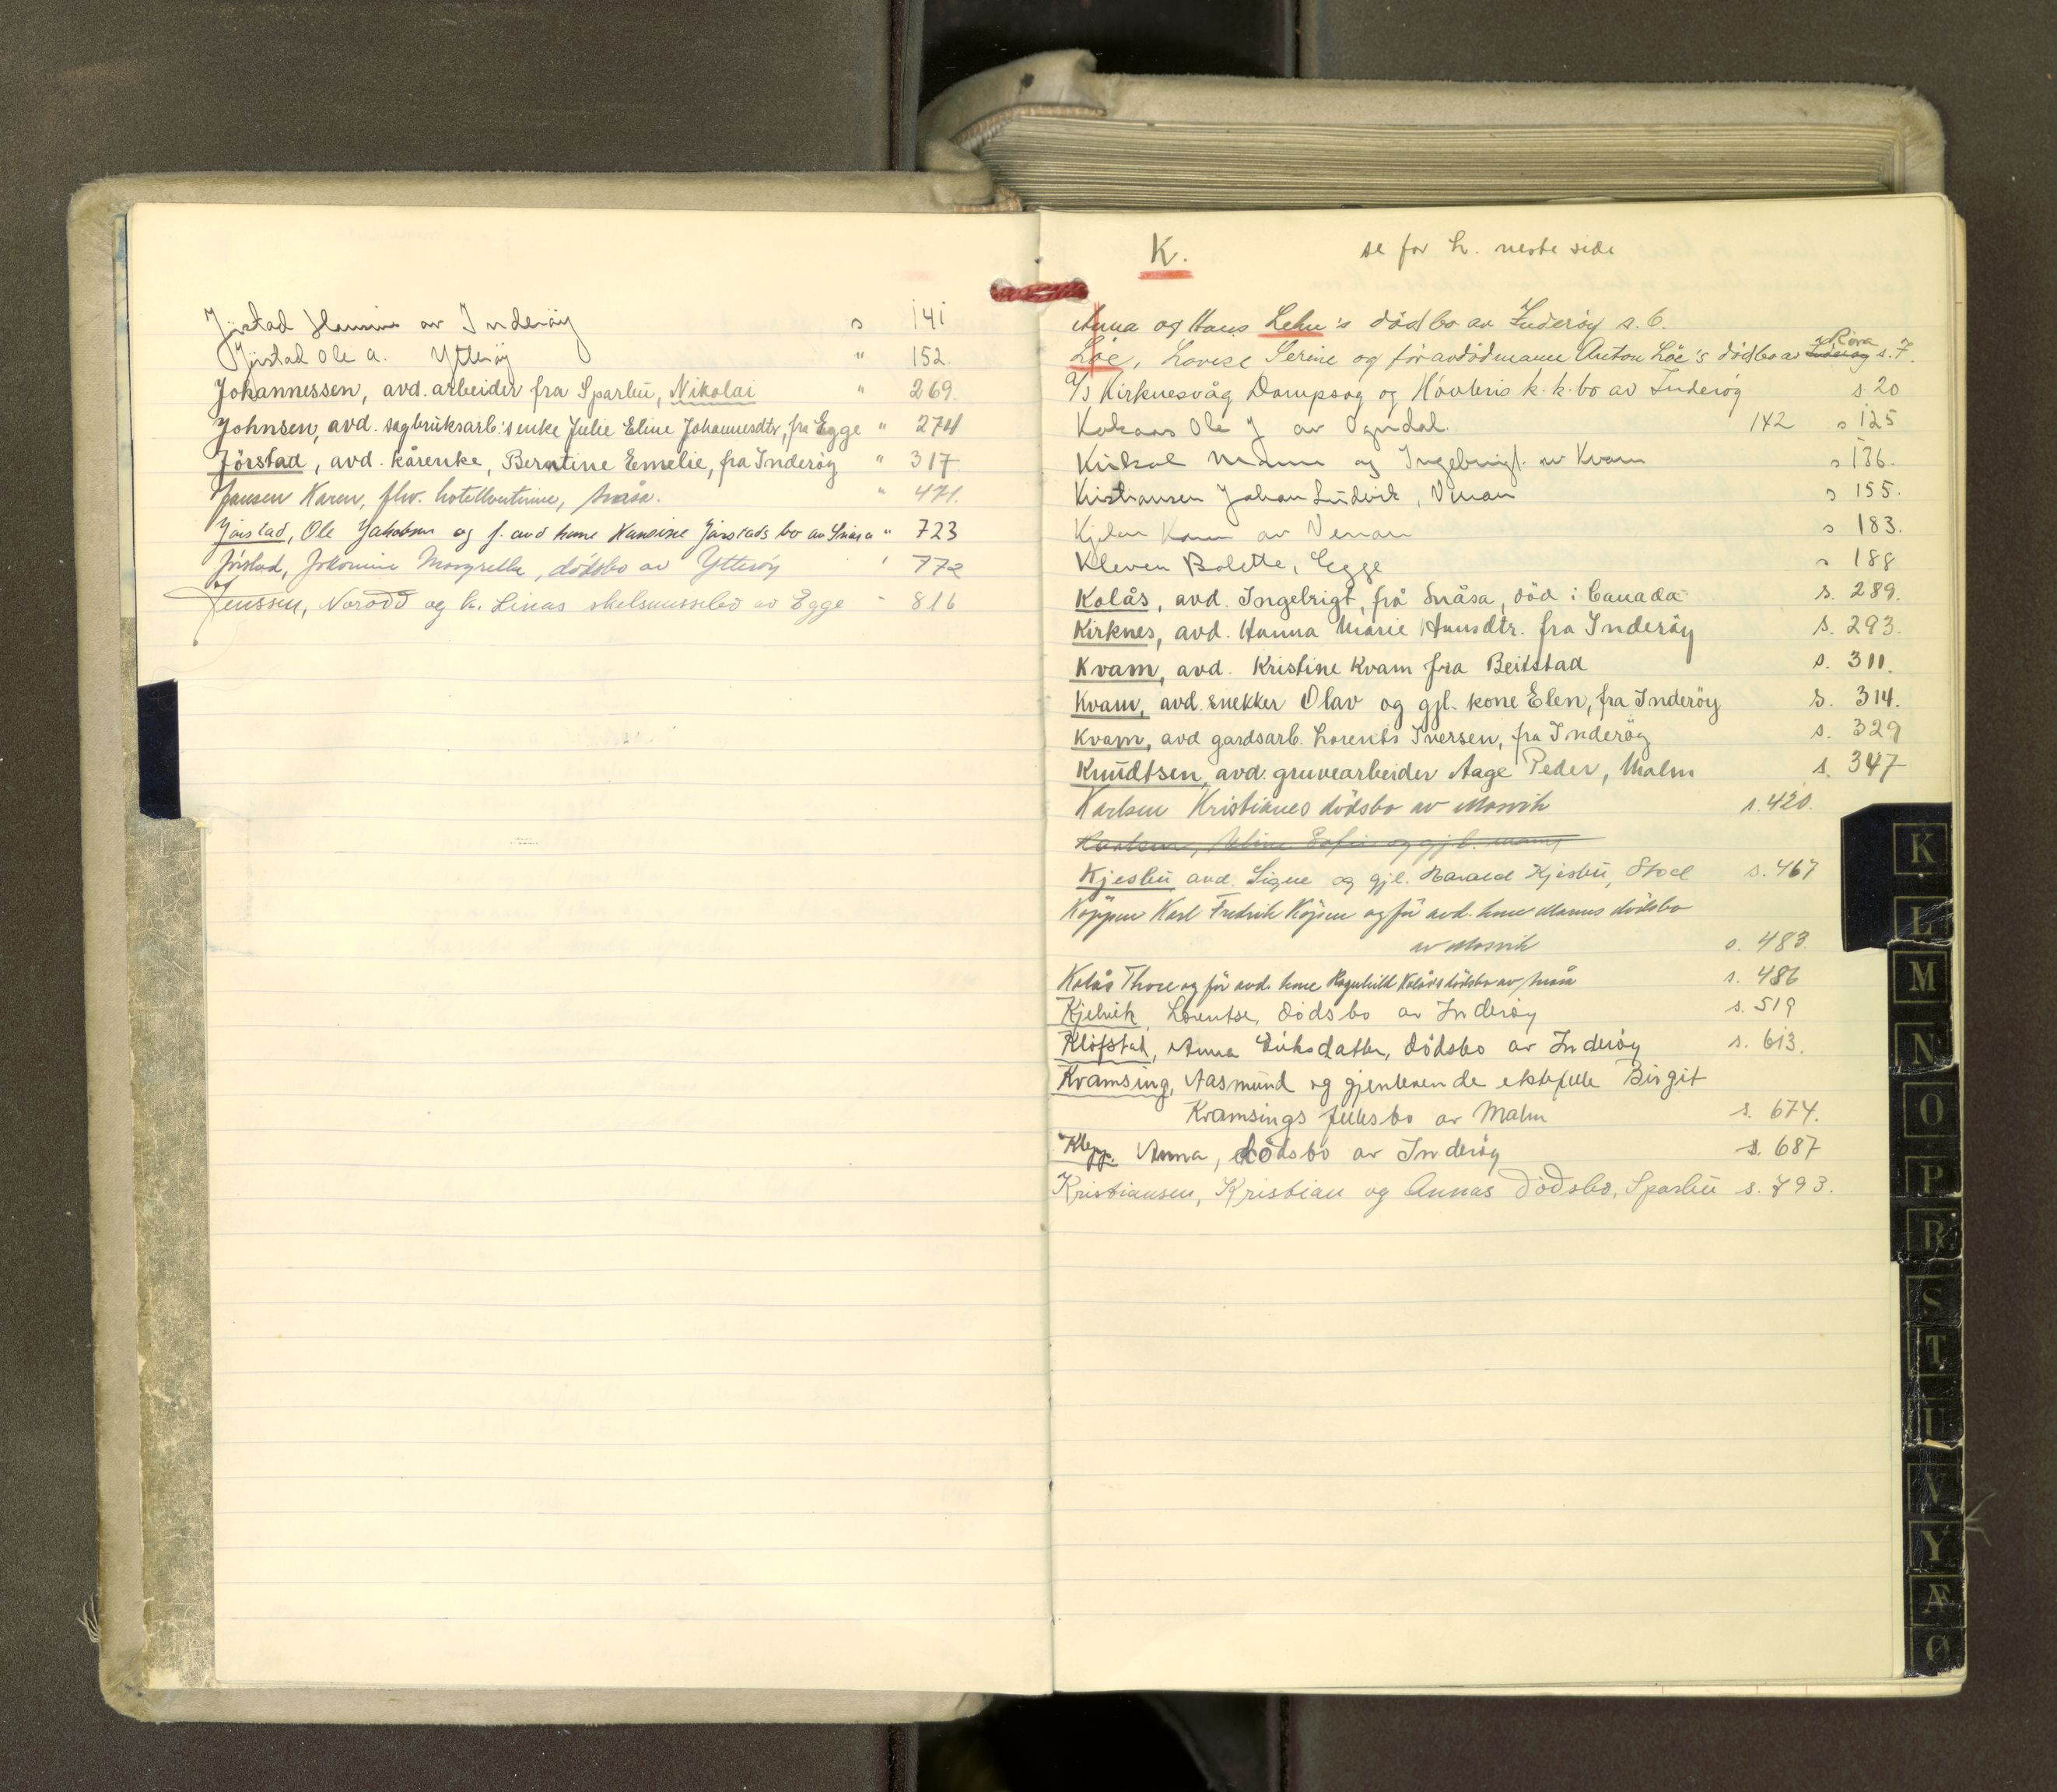 Jörstad Hannine av Inderöy s 141
Jörstad Ole A. Ytteröy " 152.
Johannessen, avd. arbeider fra Sparbu, Nikolai " 269.
Johnsen, avd. sagbruksarb.'s enke Julie Eline Johannesdtr, fra Egge " 274
Jörstad, avd. kårenke, Berntine Emelie, fra Inderöy " 317
Jansen Karen, fhv. hotellvertinne, Snåsa. " 471.
Jörstad, Ole Jakobsen og f. avd kone Hansine Jörstads bo av Snåsa " 723
Jörstad, Margrethe, dödsbo av Ytteröy " 772
Jenssen, Norodd og h. Linas skelsmissebo av Egge - 816
K.
se for L. neste side
Anna og Hans Lehn's dödbo av Inderöy s. 6.
Löe, Lovise Serine og föravdödmann Anton Löe's dödbo av Inderöy s. 7.
A/S Kirknesvåg Dampsag og Hövleris k.k. bo av Inderöy s. 20
Kolaas Ole J av Ogndal. 142 s 125
og Ingebrigt av Kvam s 136.
Kristiansen Johan Ludvik, Verran s 155.
Kjelen Karen av Verran s 183.
Kleven Bolette, Egge s 188
Kolås, avd. Ingebrigt, frå Snåsa, död i Canada s. 289.
Kirknes, avd. Hanna Marie Hansdtr. fra Inderöy s. 293.
Kvam, avd. Kristine Kvam fra Beitstad s. 311.
Kvam, avd. snekker Olav og gjl. kone Elen, fra Inderöy s. 314.
Kvam, avd gardsarb. Lorents Iversen, fra Inderöy s. 329
Knudtsen, avd. gruvearbeider Aage Peder, Malm s. 347
Karlsen Kristianes dödsbo av Mosvik s. 420.
Karlsen, og gjl. mann
Kjesbu avd. Signe og gjl. Harald Kjesbu, Stod s. 467
Köppen Karl Fredrik Köpen og för avd. kone Marens dödsbo
av Mosvik s. 483.
Kolås Thore og för avd. kone Ragnhild Kolås dödsbo av Snåsa s. 486
Kjelvik, Lorentse, dödsbo av Inderöy s. 519
Klöfstad, Anna Eriksdatter, dödsbo av Inderöy s. 613.
Kvamsing, Aasmund og gjenlevende ektefelle Birgit
Kvamsings fellesbo av Malm s. 674.
Klepp. Anna, dödsbo av Inderöy s. 687
Kristiansen, Kristian og Annas Dödsbo, Sparbu s. 793.
K
L
M
N
O
P
R
S
T
U
V
Y
Æ
Ø